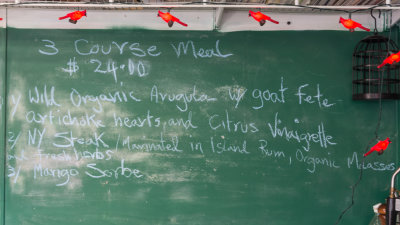 3 Course Meal
$24.00
1/ Wild Organic Arugula w/ goat Fete
artichoke hearts, and Citrus Vinaigrette
2/ NY Steak / Marinated in Island Rum, Organic Molasses
and fresh herbs
3/ Mango Sorbe